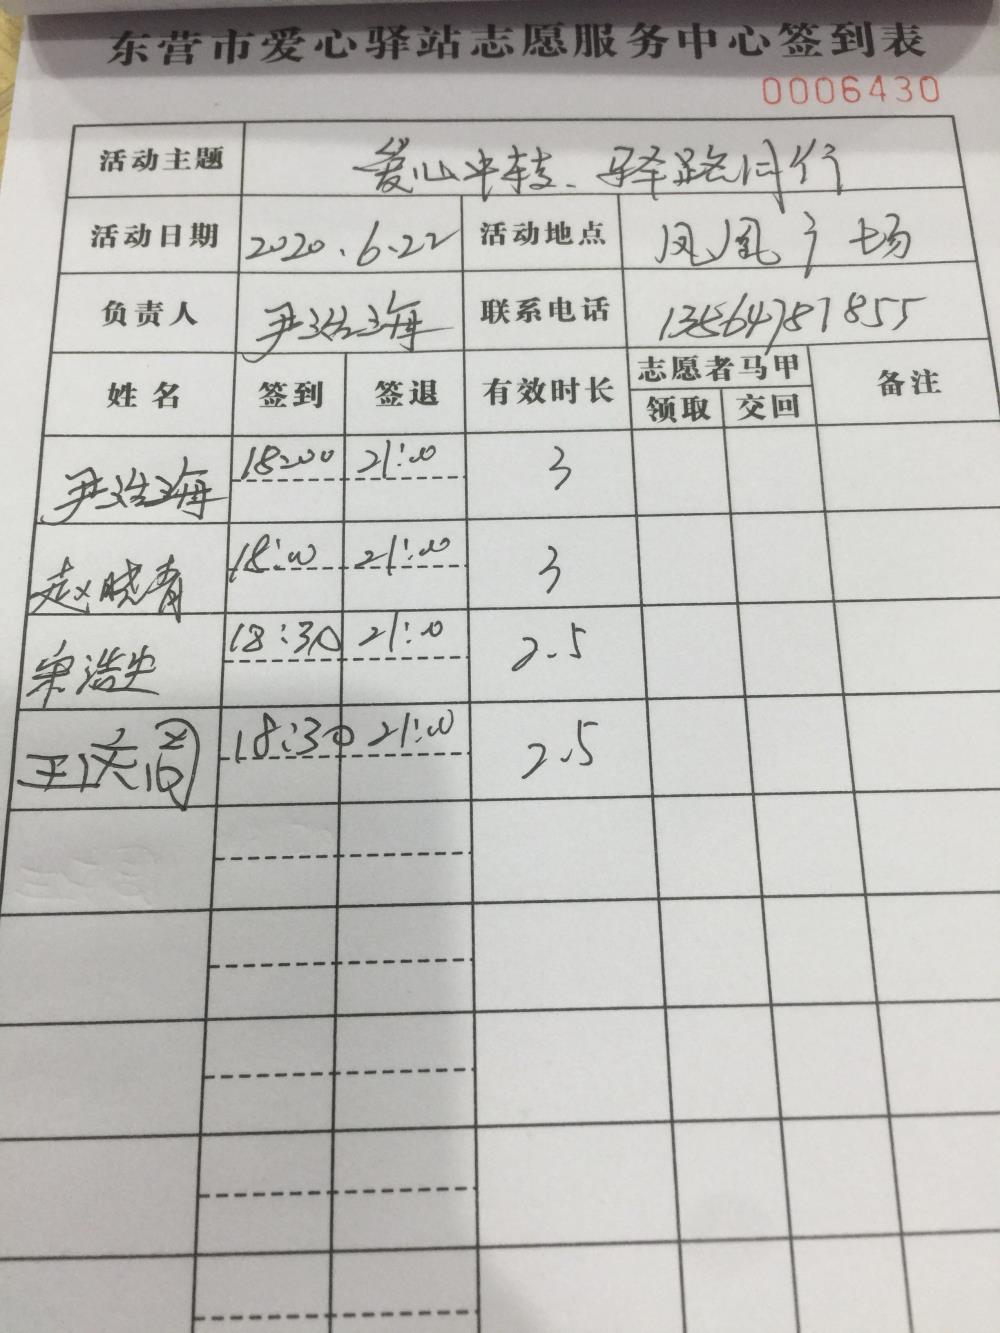 东营市爱心驿站志愿服务中心签到表
0006430
活动主题 爱心中转、驿路同行
活动日期 2020.6.22 活动地点 凤凰广场
负责人 尹浩海 联系电话 13864787855
姓名 签到 签退 有效时长 志愿者马甲 备注
领取 交回
尹浩海 18:00 21:00 3
赵晓青 18:00 21:00 3
宋浩史 18:30 21:00 2.5
18:30 21:00 2.5